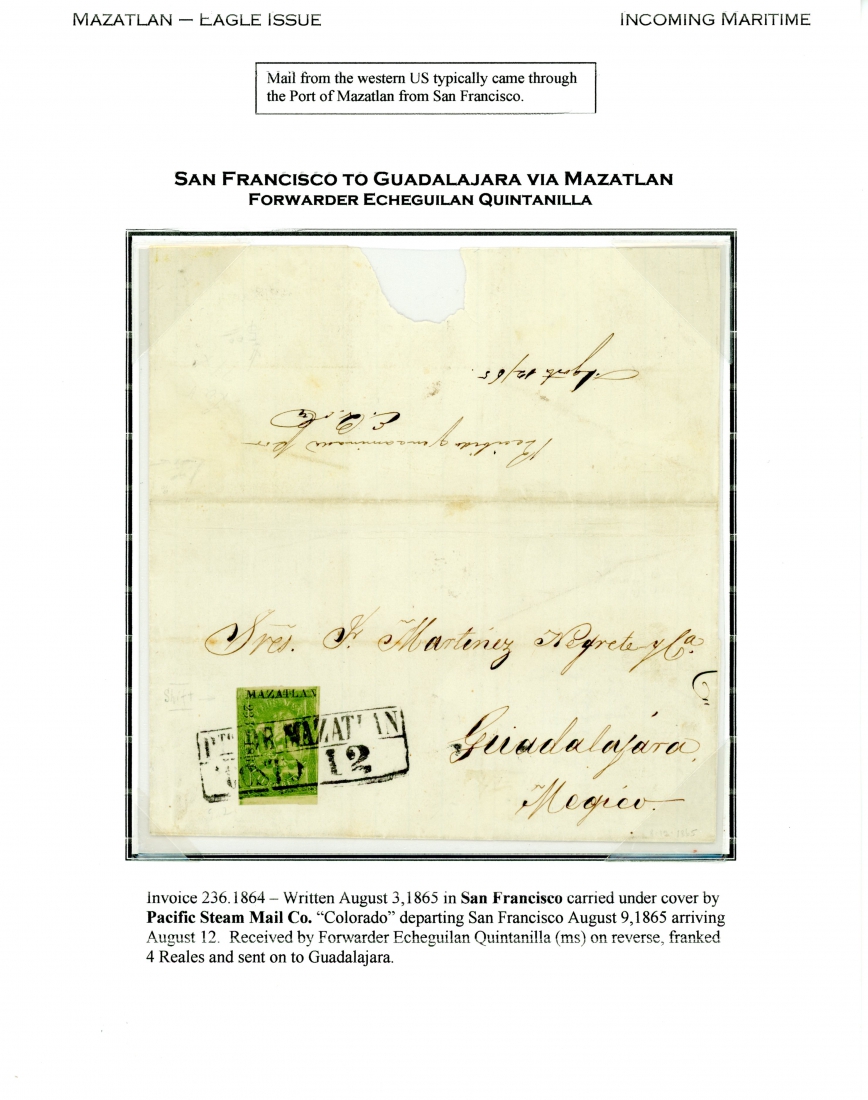 MAZATLAN – EAGLE ISSUE
INCOMING MARITIME
Mail from the western US typically came through
the Port of Mazatlan from San Francisco.
SAN FRANCISCO TO GUADALAJARA VIA MAZATLAN
FORWARDER ECHEGUILAN QUINTANILLA
Agosto 12/65.
Recibida y encaminada por
E. Q. y Ca
Sres. Fr. Martinez Negrete y Ca.
MAZATLAN
PTO DE MAZATLAN
AGOSTO 12
Guadalajára,
Megico.
Invoice 236.1864 – Written August 3,1865 in San Francisco carried under cover by
Pacific Steam Mail Co. “Colorado” departing San Francisco August 9,1865 arriving
August 12. Received by Forwarder Echeguilan Quintanilla (ms) on reverse, franked
4 Reales and sent on to Guadalajara.